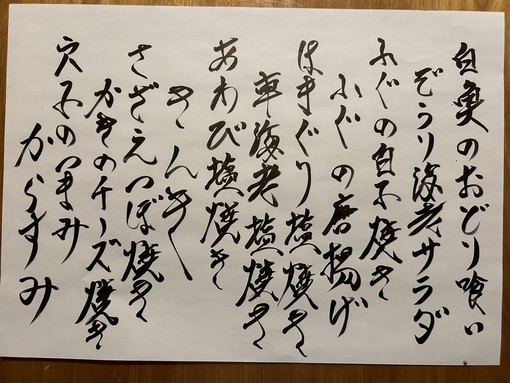 白魚のおどり喰い
ぞうり海老サラダ
ふぐの白子焼き
ふぐの唐揚げ
はまぐり塩焼き
車海老塩焼き
あわび塩焼き
きんき
さざえつぼ焼き
かきのチーズ焼き
穴子のつまみ
からすみ